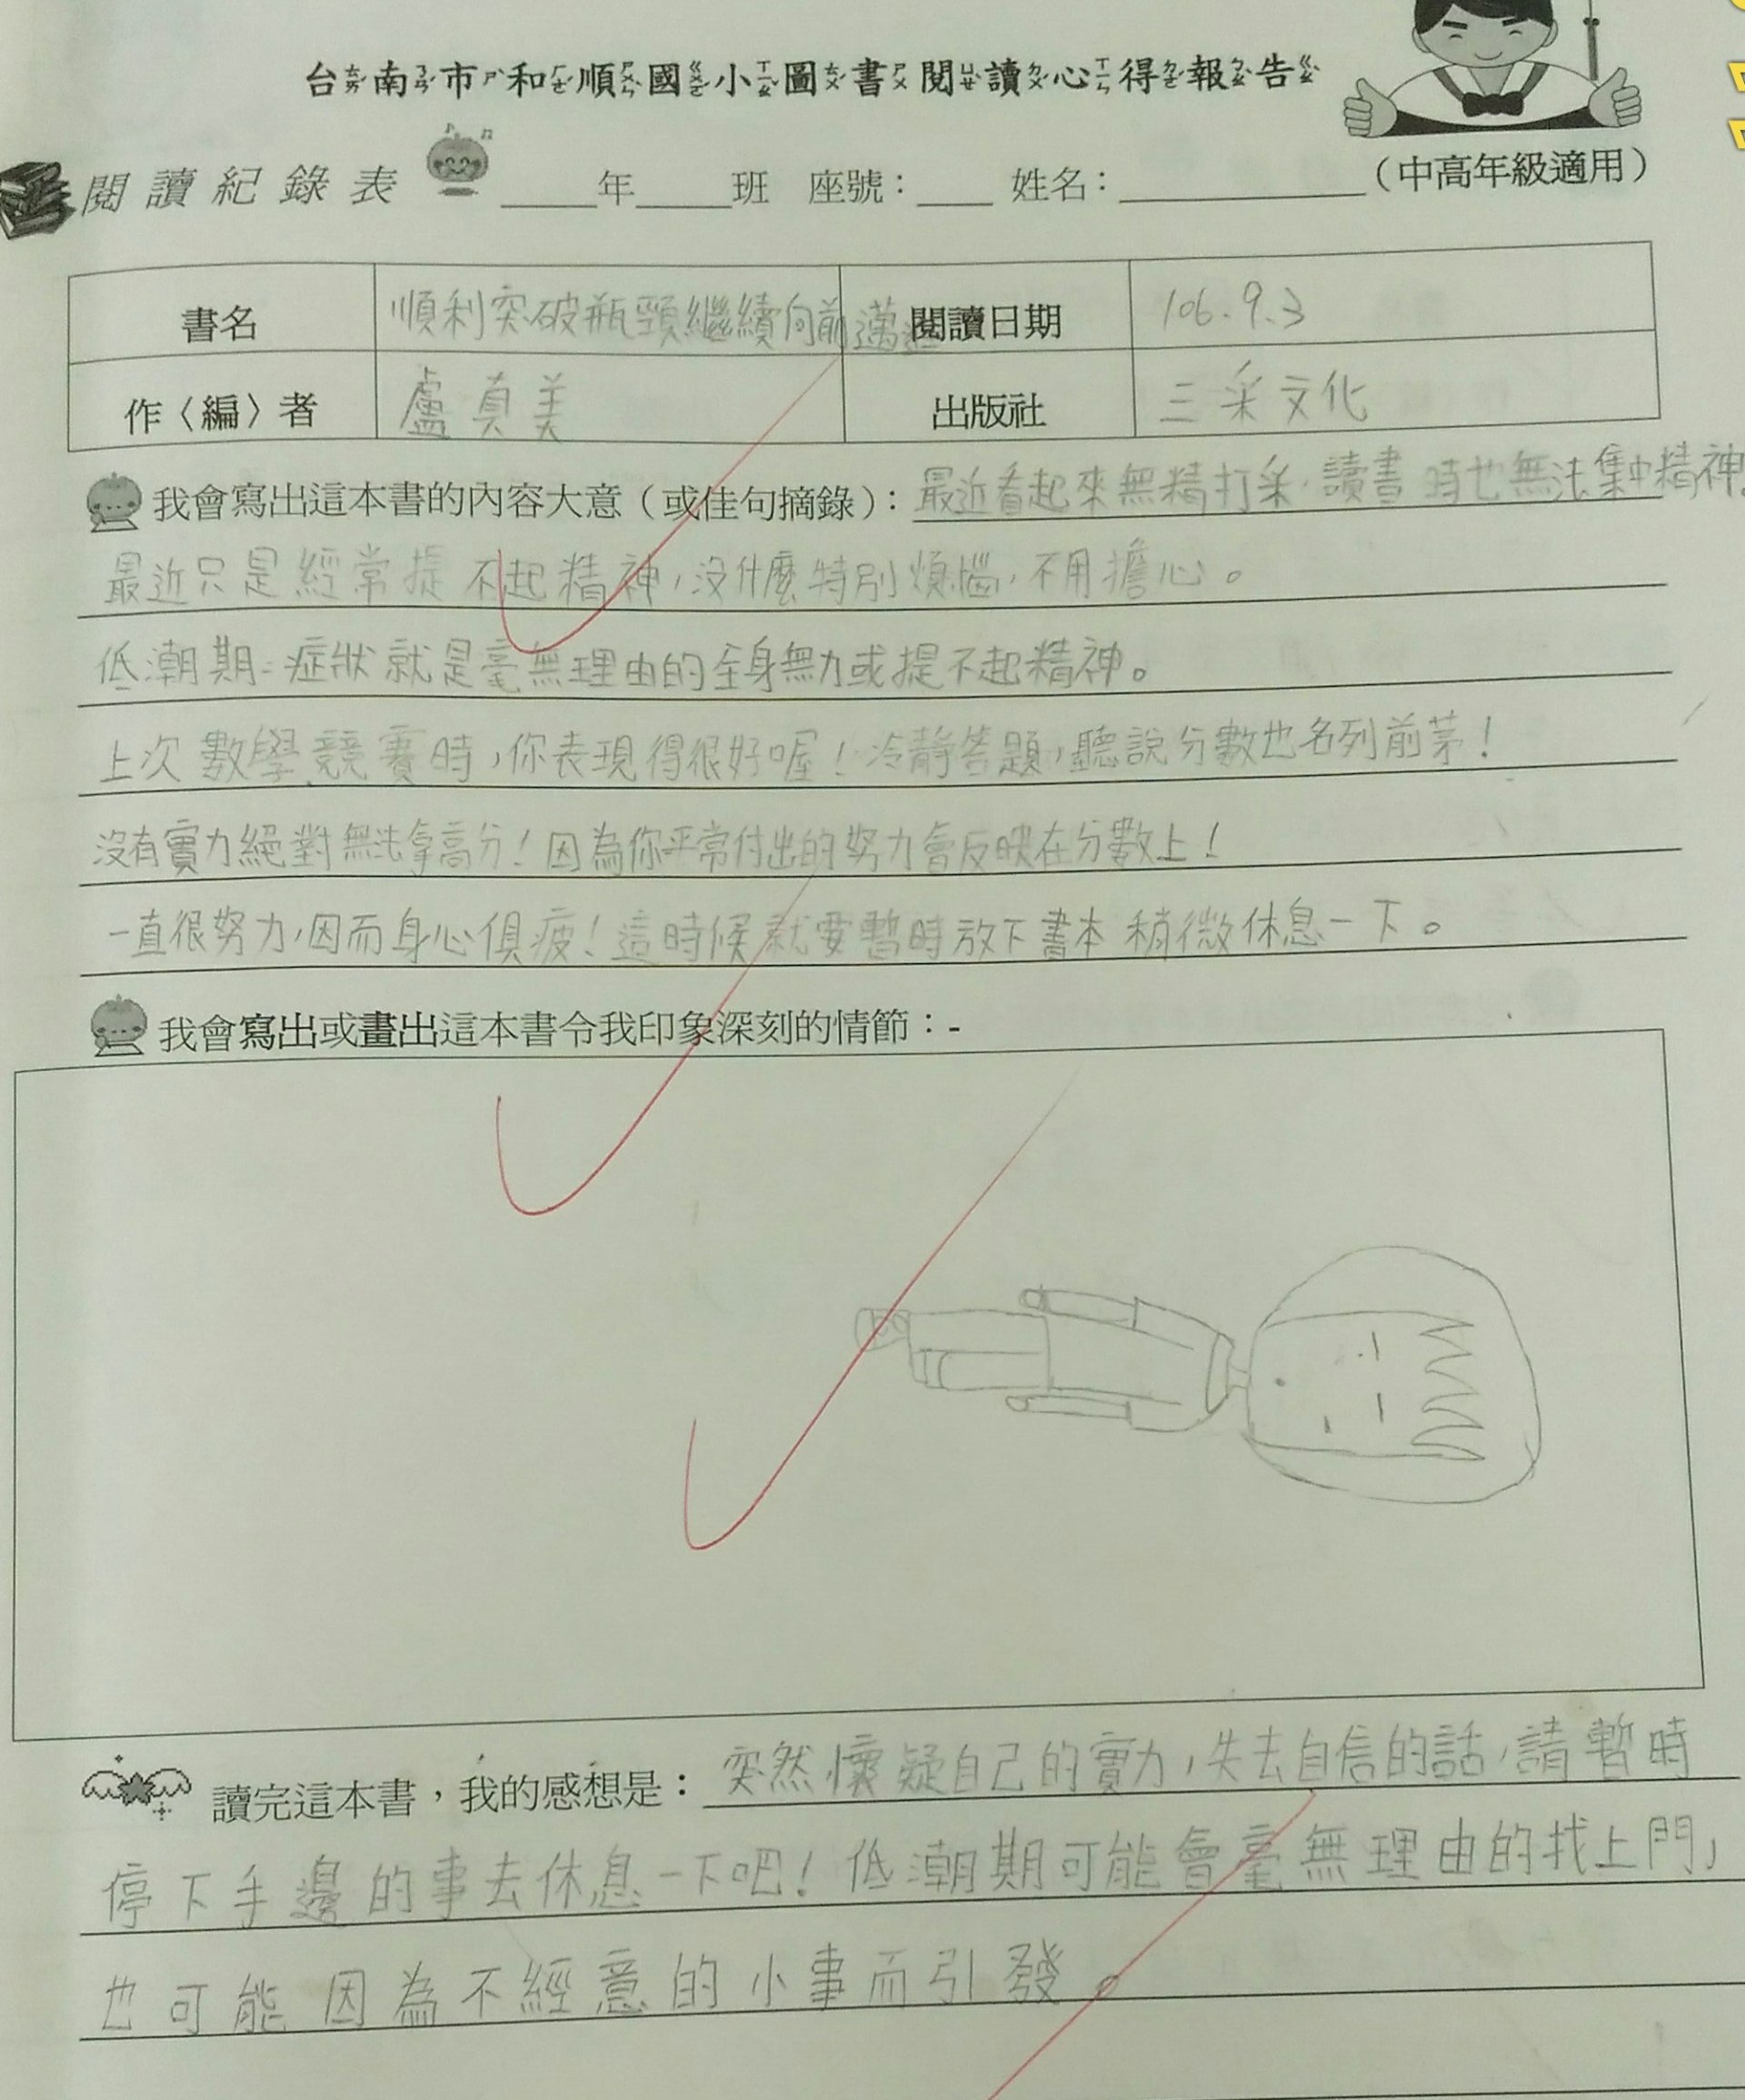 台南市和順國小圖書閱讀心得報告
閱讀紀錄表 ____年____班 座號:____ 姓名:__________(中高年級適用)
書名 順利突破瓶頸繼續向前邁進 閱讀日期 106.9.3
作〈編〉者 盧真美 出版社 三采文化
我會寫出這本書的內容大意(或佳句摘錄):最近看起來無精打采,讀書時也無法集中精神。
最近只是經常提不起精神,沒什麼特別煩惱,不用擔心。
低潮期:症狀就是毫無理由的全身無力或提不起精神。
上次數學競賽時,你表現得很好喔!冷靜答題,聽說分數也名列前茅!
沒有實力絕對無法拿高分!因為你平常付出的努力會反映在分數上!
一直很努力,因而身心俱疲!這時候就要暫時放下書本稍微休息一下。
我會寫出或畫出這本書令我印象深刻的情節:-
讀完這本書,我的感想是:突然懷疑自己的實力,失去自信的話,請暫時
停下手邊的事去休息一下吧!低潮期可能會毫無理由的找上門,
也可能因為不經意的小事而引發。